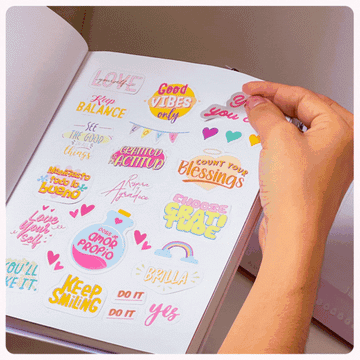 LOVE
yourself
Good
VIBES
only
YOU
Keep
BALANCE
SEE
THE GOOD
in all
things
GRATITUD
ACTITUD
COUNT YOUR
Blessings
Manifiesto
todo lo
BUENO
Respira y
Agradece
CHOOSE
GRATI
TUDE
Love
Your
Self
AMOR
PROPIO
BRILLA
YOU'LL
KE IT.
KEEP
SMILING
DO IT
DO IT
yes